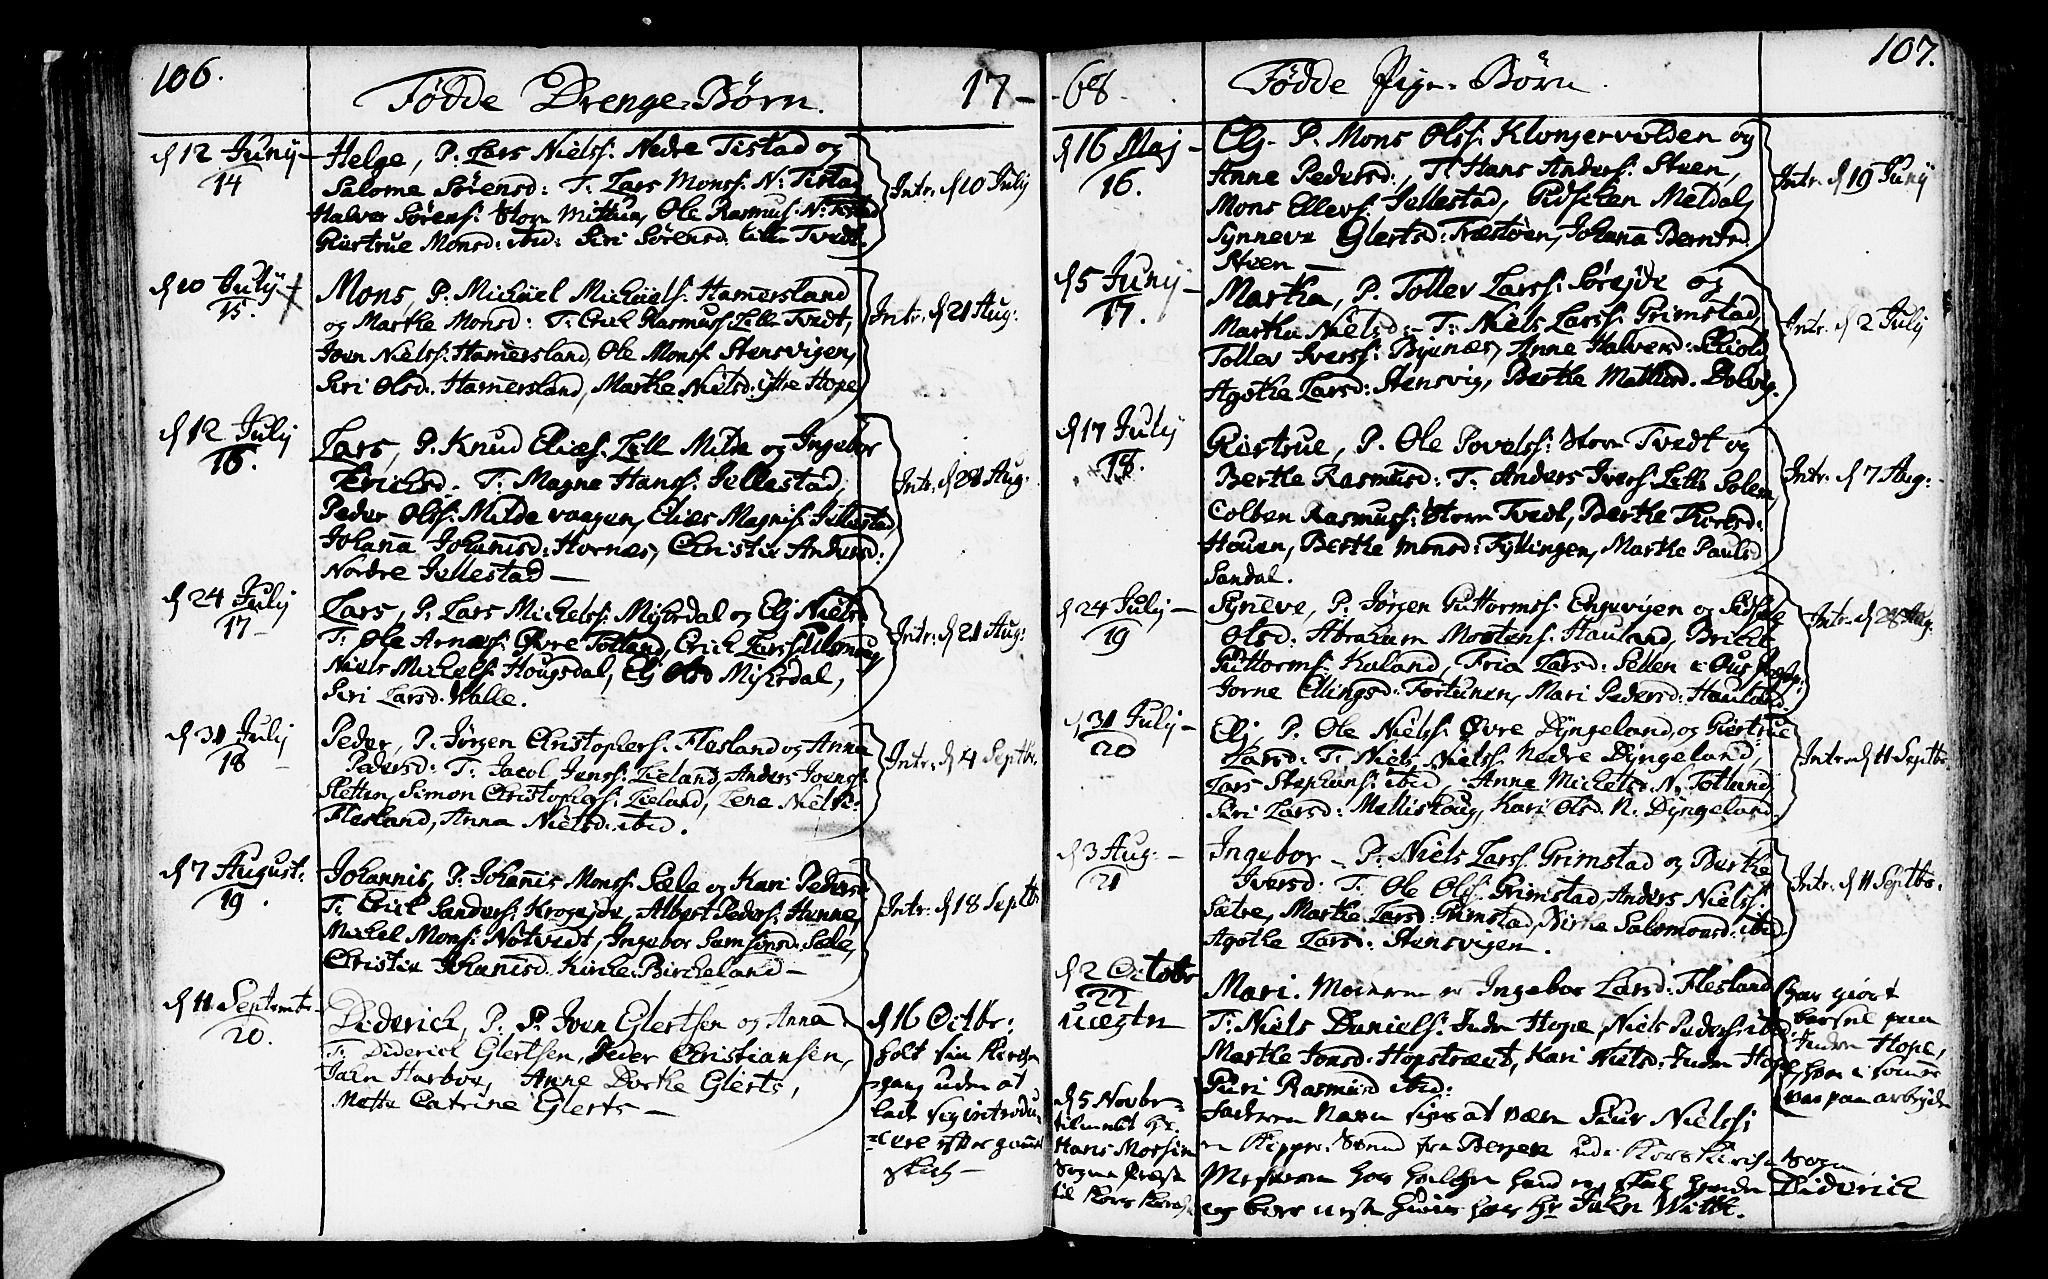 106.
Fødde Drenge-Børn.
17-
d 12 Junij
14
Helge, P. Lars Nielss: Nedre Tistad og
Salome Sørensd: T: Lars Monss: N: Tistad
Halver Sørens: Store Milde, Ole Rasmus: N: Tistad
Giertrue Monsd: ibid: Siri Sørensd: Lille Tvedt.
Intr. d 10 Julij
d 10 Julij
15.
Mons, P. Michael Michaels: Hamersland
og Marthe Monsd: T: Erich Rasmuss: Lille Tvedt,
Joen Nielss: Hamersland, Ole Monss: Stensvigen,
Siri Olsd. Hamersland, Marthe Nielsd: ittre Hope
Intr. d 21 Aug:
d 12 Julij
16.
Lars, P. Knud Elias: Lille Milde og Ingebor
Erichsd. T: Magne Hanss: Jellestad,
Peder Olss: Milde vaagen, Elias Magnis: Jellestad
Johana Johanisd: Hornæs, Christie Andersd:
Nordre Jellestad —
Intr. d 28 Aug:
d 24 Julij
17
Lars, P. Lars Michelss: Mijerdal og Elj Niels
T: Ole Arness: Øvre Totland, Erich Larss:
Niels Michels: Hougsdal, Elj Olsd Mijerdal,
Siri Larsd. Walle.
Intr: d 21 Aug:
d 31 Julij
18
Peder, P. Jørgen Christophers: Flesland og Anna
Pedersd: T: Jacob Jenss: Lieland, Anders Joenss:
Sletten, Simon Christophers: Lieland, Lene Niels:
Flesland, Anna Nielsd: ibid.
Intr: d 4 Septbr.
d 7 August.
19.
Johannis, P. Johanis Monss: Sæle og Kari Peders
T: Erich Sanders: Krogejde, Albert Peders: Hunne,
Michel Mons: Nøtvedt, Ingebor Samsonsd. Sæle,
Christie Johanisd. Kirke Bircheland —
Intr: d 18 Septbr
d 11 Septembr
20.
Diderich, P. S. Iven Glertsen og Anna
T: Diderich Glertsen, Peder Christiansen,
John Harboe, Anne Dorthe Glerts,
Mette Catrine Glerts —
d 16 Octbr:
holt sin Kirche
gang uden at
lade sig introdu-
cere efter gammel
skick —
107.
68
Fødde Pige-Børn.
d 16 Maj
16.
Elj. P. Mons Olss: Klongervolden og
Anne Pedersd:, T: Hans Anders: Steen,
Mons Ellevs: Jellestad, Metdal,
Synneve Glertsd: Træstøen, Johana Berntsd.
Steen —
Intr. d 19 Junij
d 5 Junij
17.
Martha, P. Tollev Larss: Sørejde og
Martha Nielsd: T: Niels Larss: Grimstad,
Tollev Iverss: Bjenæs, Anne Halversd: Skiold,
Agothe Larsd: Stensvig, Berthe Mathisd. Dolvig.
Intr. d 2 Julij
d 17 Julij
18.
Giertrue, P. Ole Povelss: Store Tvedt og
Berthe Rasmusd: T: Anders Ivers: Lille Solem,
Colben Rasmuss: Store Tvedt, Berthe Thorsd:
Houen, Berthe Monsd: Fyllingen, Marthe Paulsd
Sandal.
Intr. d 7 Aug:
d 24 Julij
19
Syneve, P. Jørgen Guttorms: Engevigen og
Olsd: Abraham Mortens: Hauland, Brithe
Guttorms: Kuland, Fria Larsd: Sellen
Jorne Ellingsd: Fortunen, Mari Pedersd: Hauland.
Intr. d 28 Aug.
d 31 Julij
20
Elj, P. Ole Nielss: Øvre Dyngeland, og Giertrue
Larsd: T. Niels Nielss: Nedre Dyngeland,
Lars Stephans: ibid, Anne Michelsd. N. Totland,
Siri Larsd: Melliskoug, Kari Olsd. N: Dyngeland.
Intr. d 11 Septbr.
d 3 Aug:
21
Ingebor — P. Niels Larss. Grimstad og Berthe
Iversd. T. Ole Olss: Grimstad, Anders Nielss:
Sætre, Marthe Larsd: Grimstad, Birthe Salomonsd: ibid
Agothe Larsd: Stensvigen.
Intr. d 11 Septbr.
d 2 Octobr
22
uægte
Mari. Moderen er Ingebor Larsd: Flesland
T: Niels Daniels: Indre Hope, Niels Peders: ibid
Marthe Jonsd: Hopstræet, Kari Nielsd: Indre Hope
Guri Rasmusd ibid:
Faderen Navn siges at være Siur Nielss:
en Skipper Svend fra Bergen udi Kors Kirche Sogn
Moderen har
og boer hos Hr John Witte.
har giort
barsel paa
Indre Hope,
hvor i
var paa arbejde
Diderich
d 5 Novbr
tilmelt Hr.
Hans Mossin
Sogne Præst
til Kors Kirche